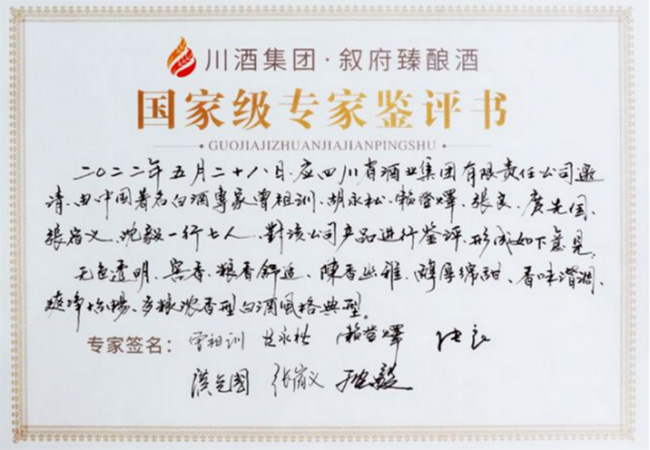 川酒集团·叙府臻酿酒
国家级专家鉴评书
GUOJIAJIZHUANJIAJIANPINGSHU
二〇二二年五月二十八日,应四川省酒业集团有限责任公司邀
请,由中国著名白酒专家曾祖训、胡永松、赖登燡、张良、唐先国、
张宿义、沈毅一行七人,對该公司产品进行鉴评,形成如下意见:
无色透明、窖香、粮香舒适、陳香幽雅、醇厚绵甜、香味谐调、
爽净怡暢、多粮浓香型白酒风格典型。
专家签名: 曾祖训 胡永松 赖登燡 张良
张宿义 沈毅